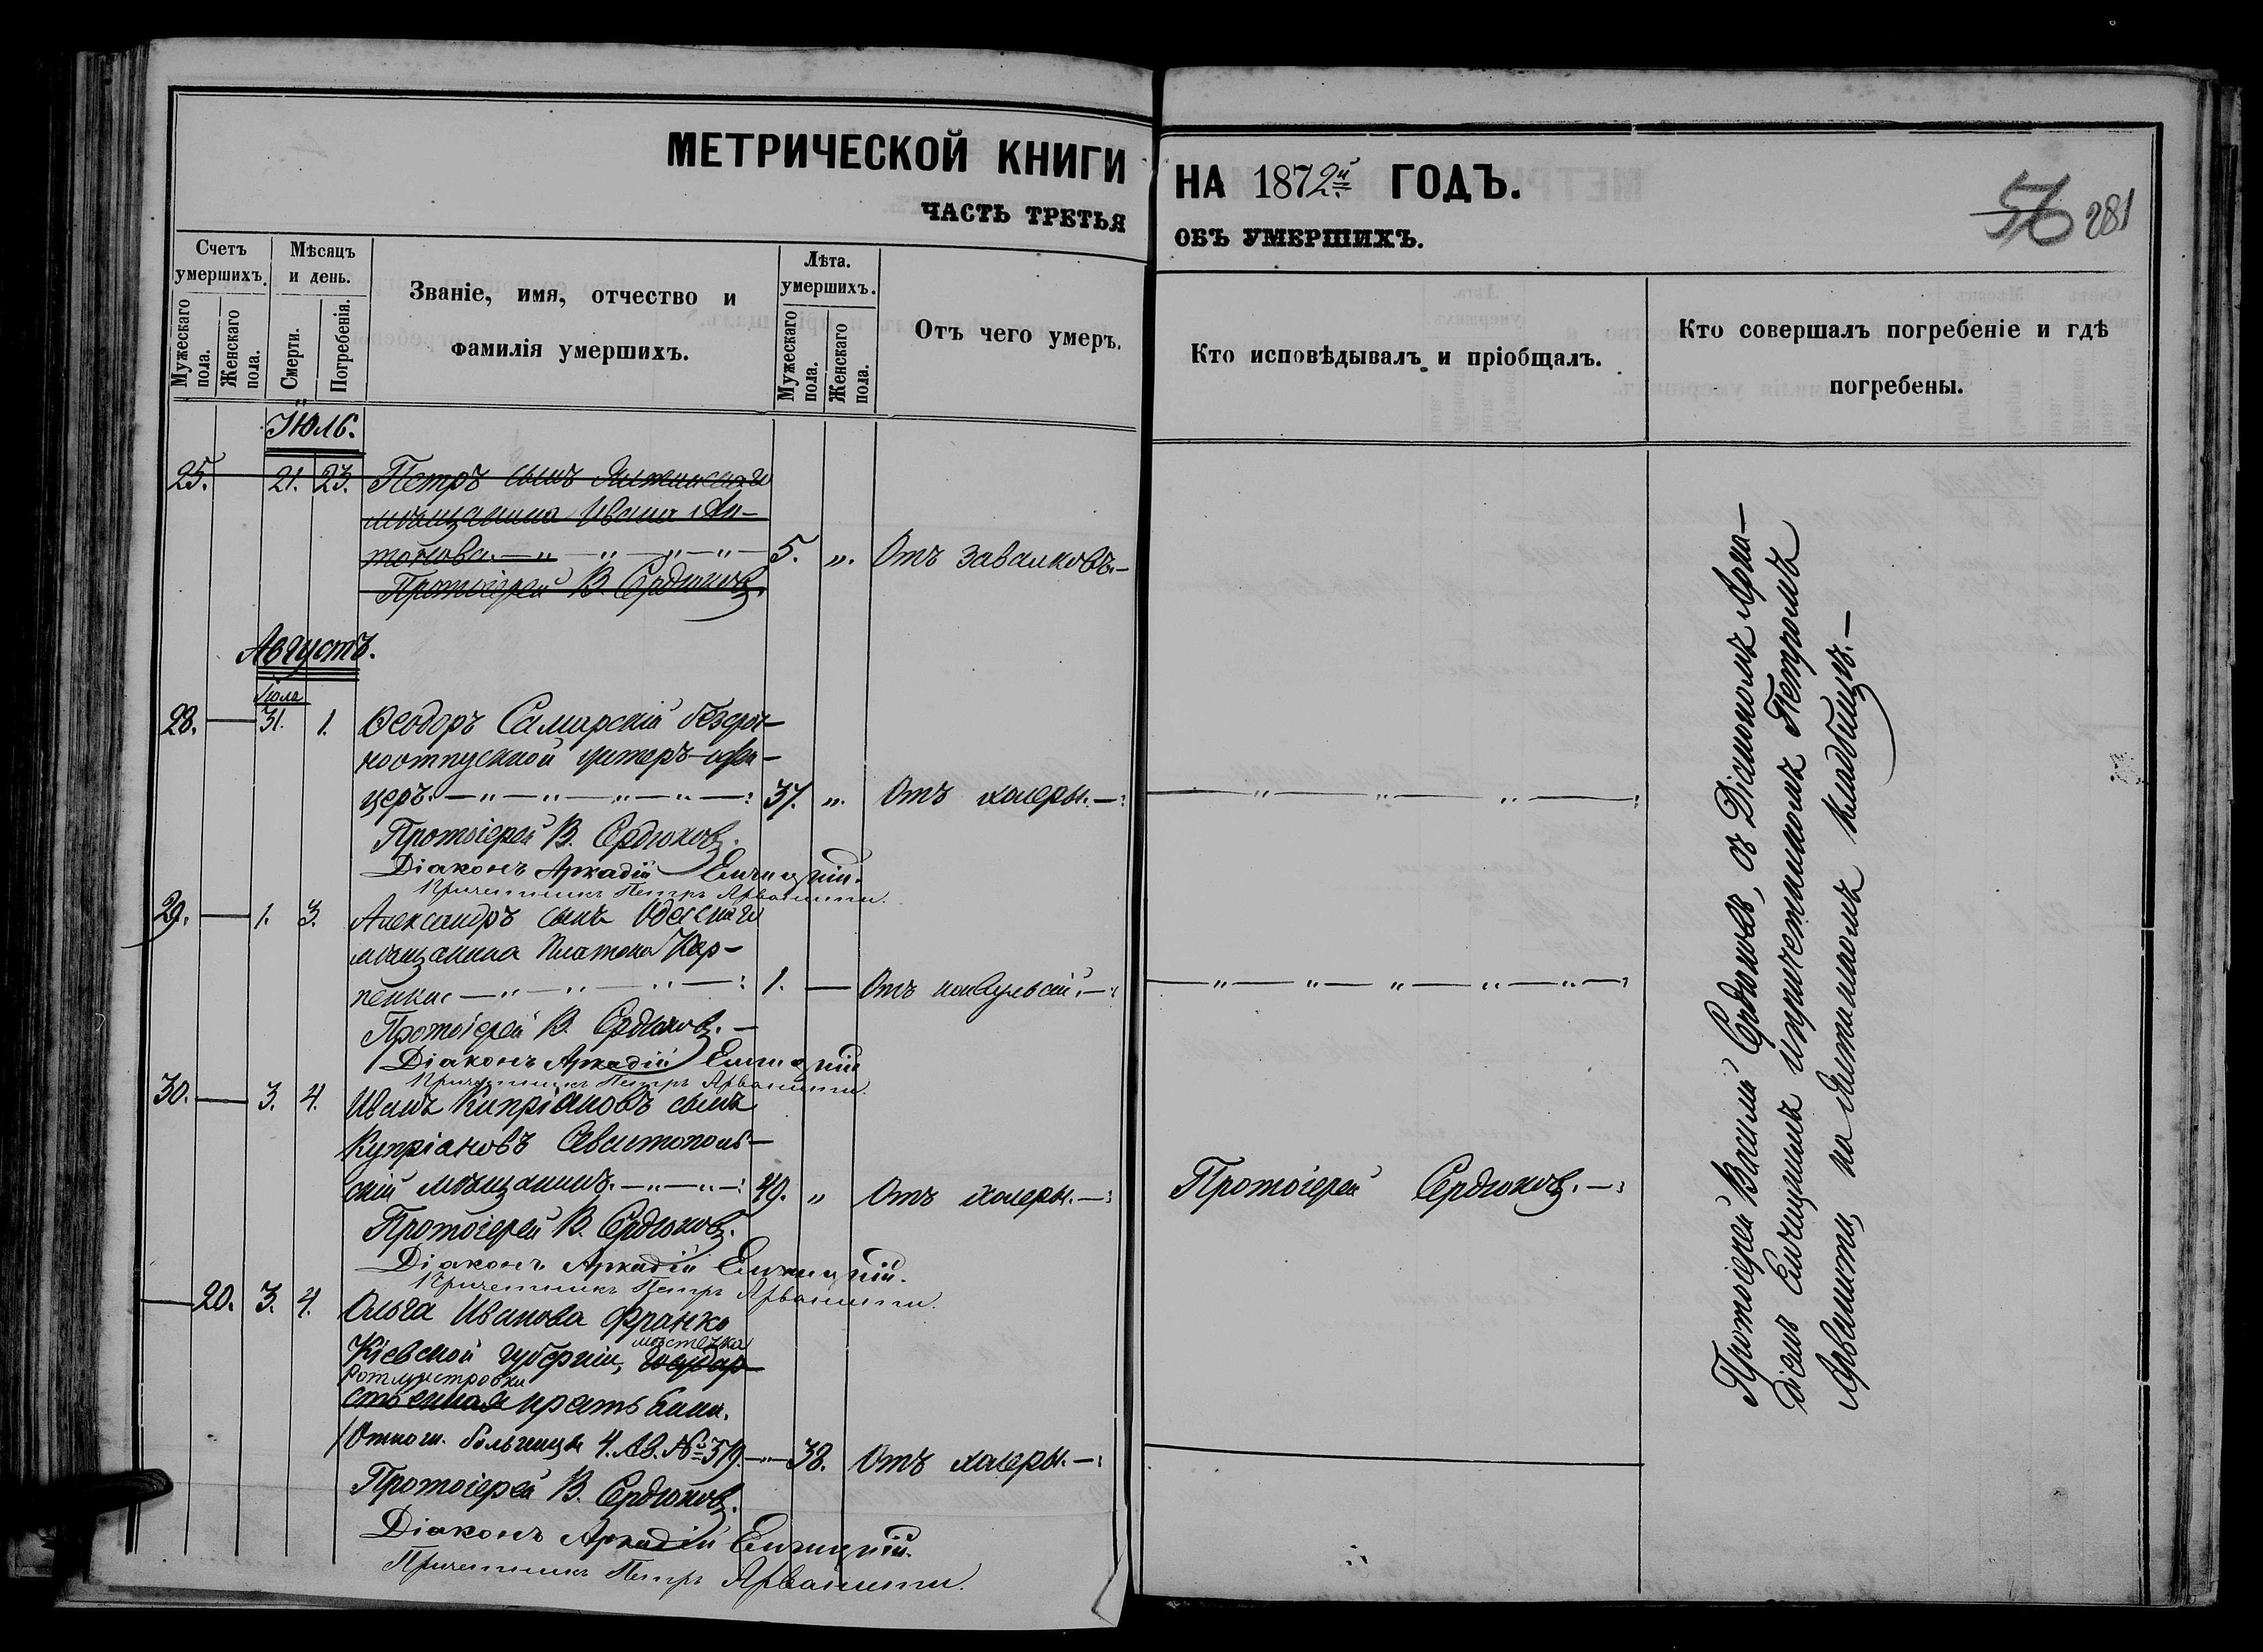 МЕТРИЧЕСКОЙ КНИГИ
ЧАСТЬ ТРЕТЬЯ
НА 1872й ГОДЪ.
ОБЪ УМЕРШИХЪ.
56 281
Счетъ умершихъ.
Мѣсяцъ и день.
Званіе, имя, отчество и
фамилія умершихъ.
Лѣта.
умершихъ.
Отъ чего умеръ.
Кто исповѣдывалъ и пріобщалъ.
Кто совершалъ погребеніе и гдѣ
погребены.
Мужескаго пола.
Женскаго пола.
Смерти.
Погребенія.
Мужескаго пола.
Женскаго пола.
Июль.
25. 21. 23. Петръ сынъ
мѣщанина Ивана Ан-
тонова. 5. „. Отъ завалковъ.
Протоіерей В. Сердюковъ.
Августъ.
Іюля
28. 31. 1. Ѳеодоръ Самарскій безсроч-
ноотпускной унтеръ-офи-
церъ. 37. „. Отъ холеры.
Протоіерей В. Сердюковъ.
Діаконъ Аркадій
Причетникъ Петръ Арванити.
29. 1. 3. Александръ сынъ Одесскаго
мѣщанина Платона Кар-
пенки 1. Отъ конвульсій.
Протоіерей В. Сердюковъ.
Діаконъ Аркадій
Причетникъ Петръ Арванити.
30. 3. 4. Иванъ Кипріановъ сынъ
Купріановъ Севастополь-
скій мѣщанинъ. 49. „ Отъ холеры. Протоіерей Сердюковъ.
Протоіерей В. Сердюковъ.
Діаконъ Аркадій
Причетникъ Петръ Арванити.
20. 3. 4. Ольга Иванова Франко
мѣстечка
Кіевской губерніи, государ-
Ротмистровки
ственная крестьянка.
Отнош. больницы 4. Ав. № 379. 38. Отъ холеры.
Протоіерей В. Сердюковъ.
Діаконъ Аркадій
Причетникъ Петръ Арванити.
Протоіерей Василій Сердюковъ, съ Діакономъ Арка-
діемъ и причетникомъ Петромъ
Арванити, на кладбищѣ.